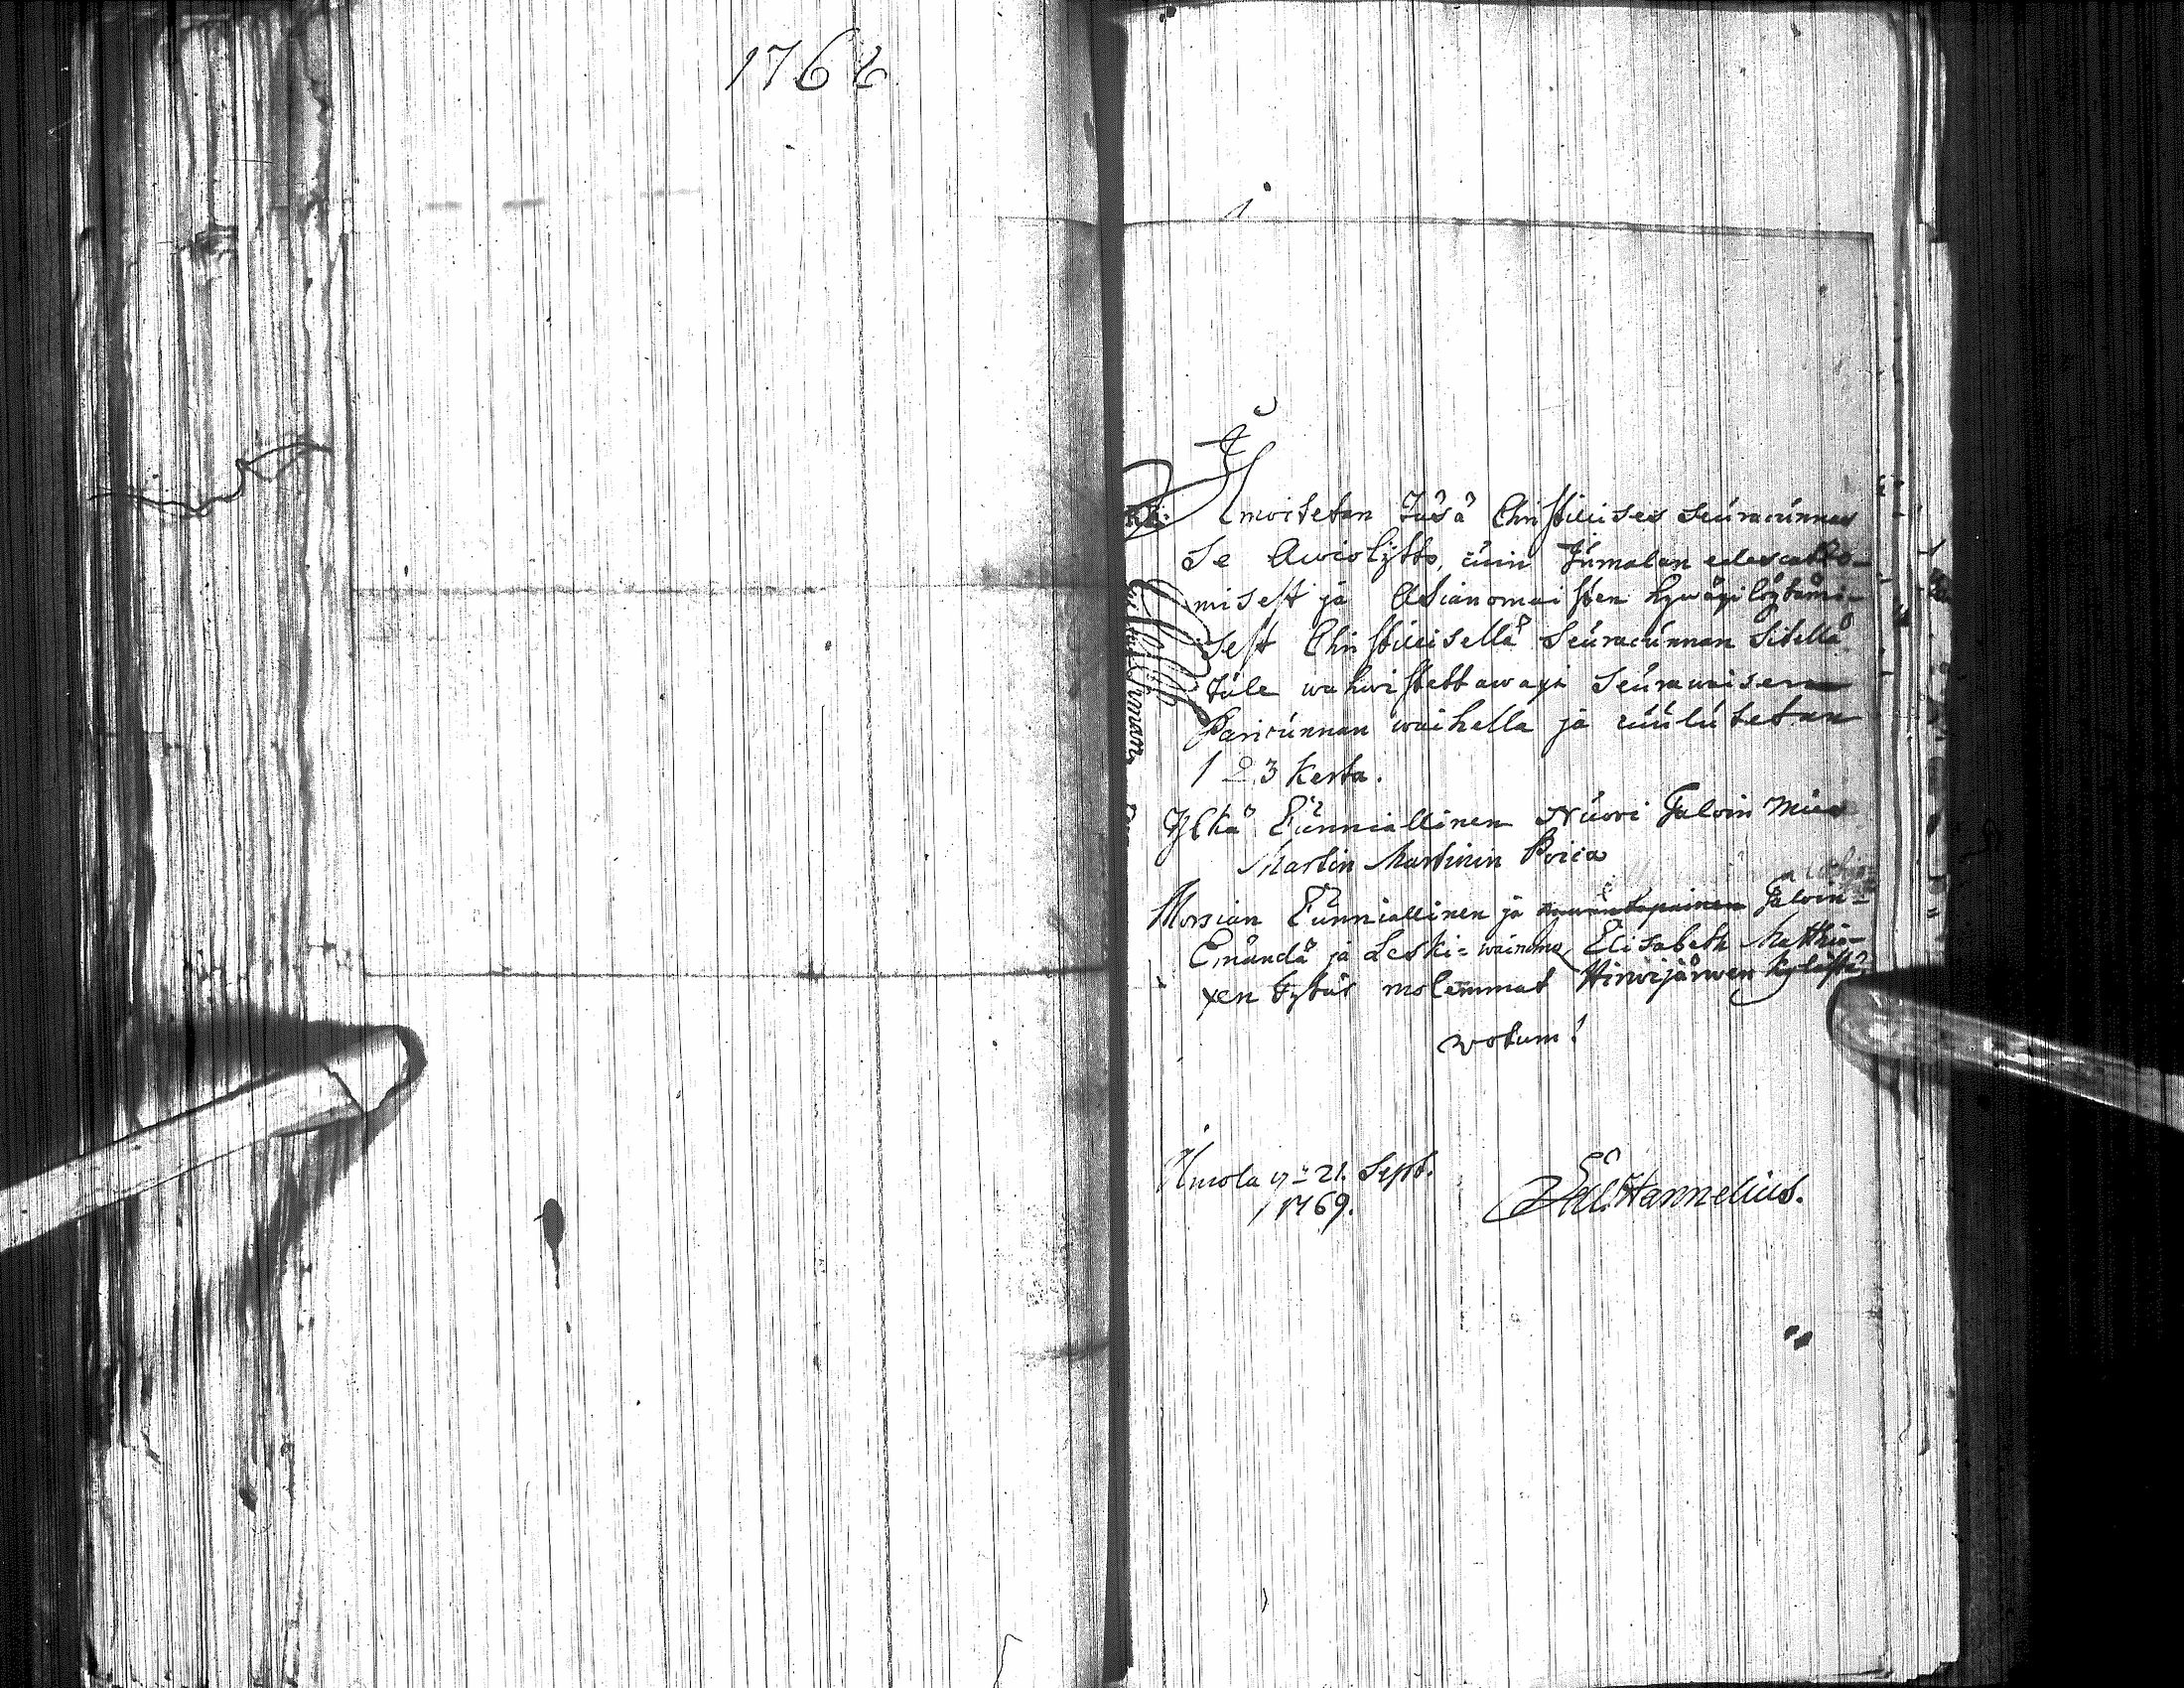 1766
1
Ilmoitetan Täsä Christillises Seuracunnas
Se Awioliitto, cuin Jumalan edescatzo-
misest ja Asianomaisten hywäxi löytämi-
sest Christillisellä Seuracunnan Sitellä
tule wahwistettawaxi Seurawaisen
Paricunnan waihella ja cuulutetan
1 2 3 Kerta.
Ylkä Cunniallinen Nuori Taloin Mies
Martin Martinin Poica
Morsian Cunniallinen ja Taloin-
Emändä ja Leski-waimo Elisabeth Matthia-
xen tytär molemmat Hinnijärwen Kyläst
votum!
Kiuola 21. Sept.
1769.
Hannelius.